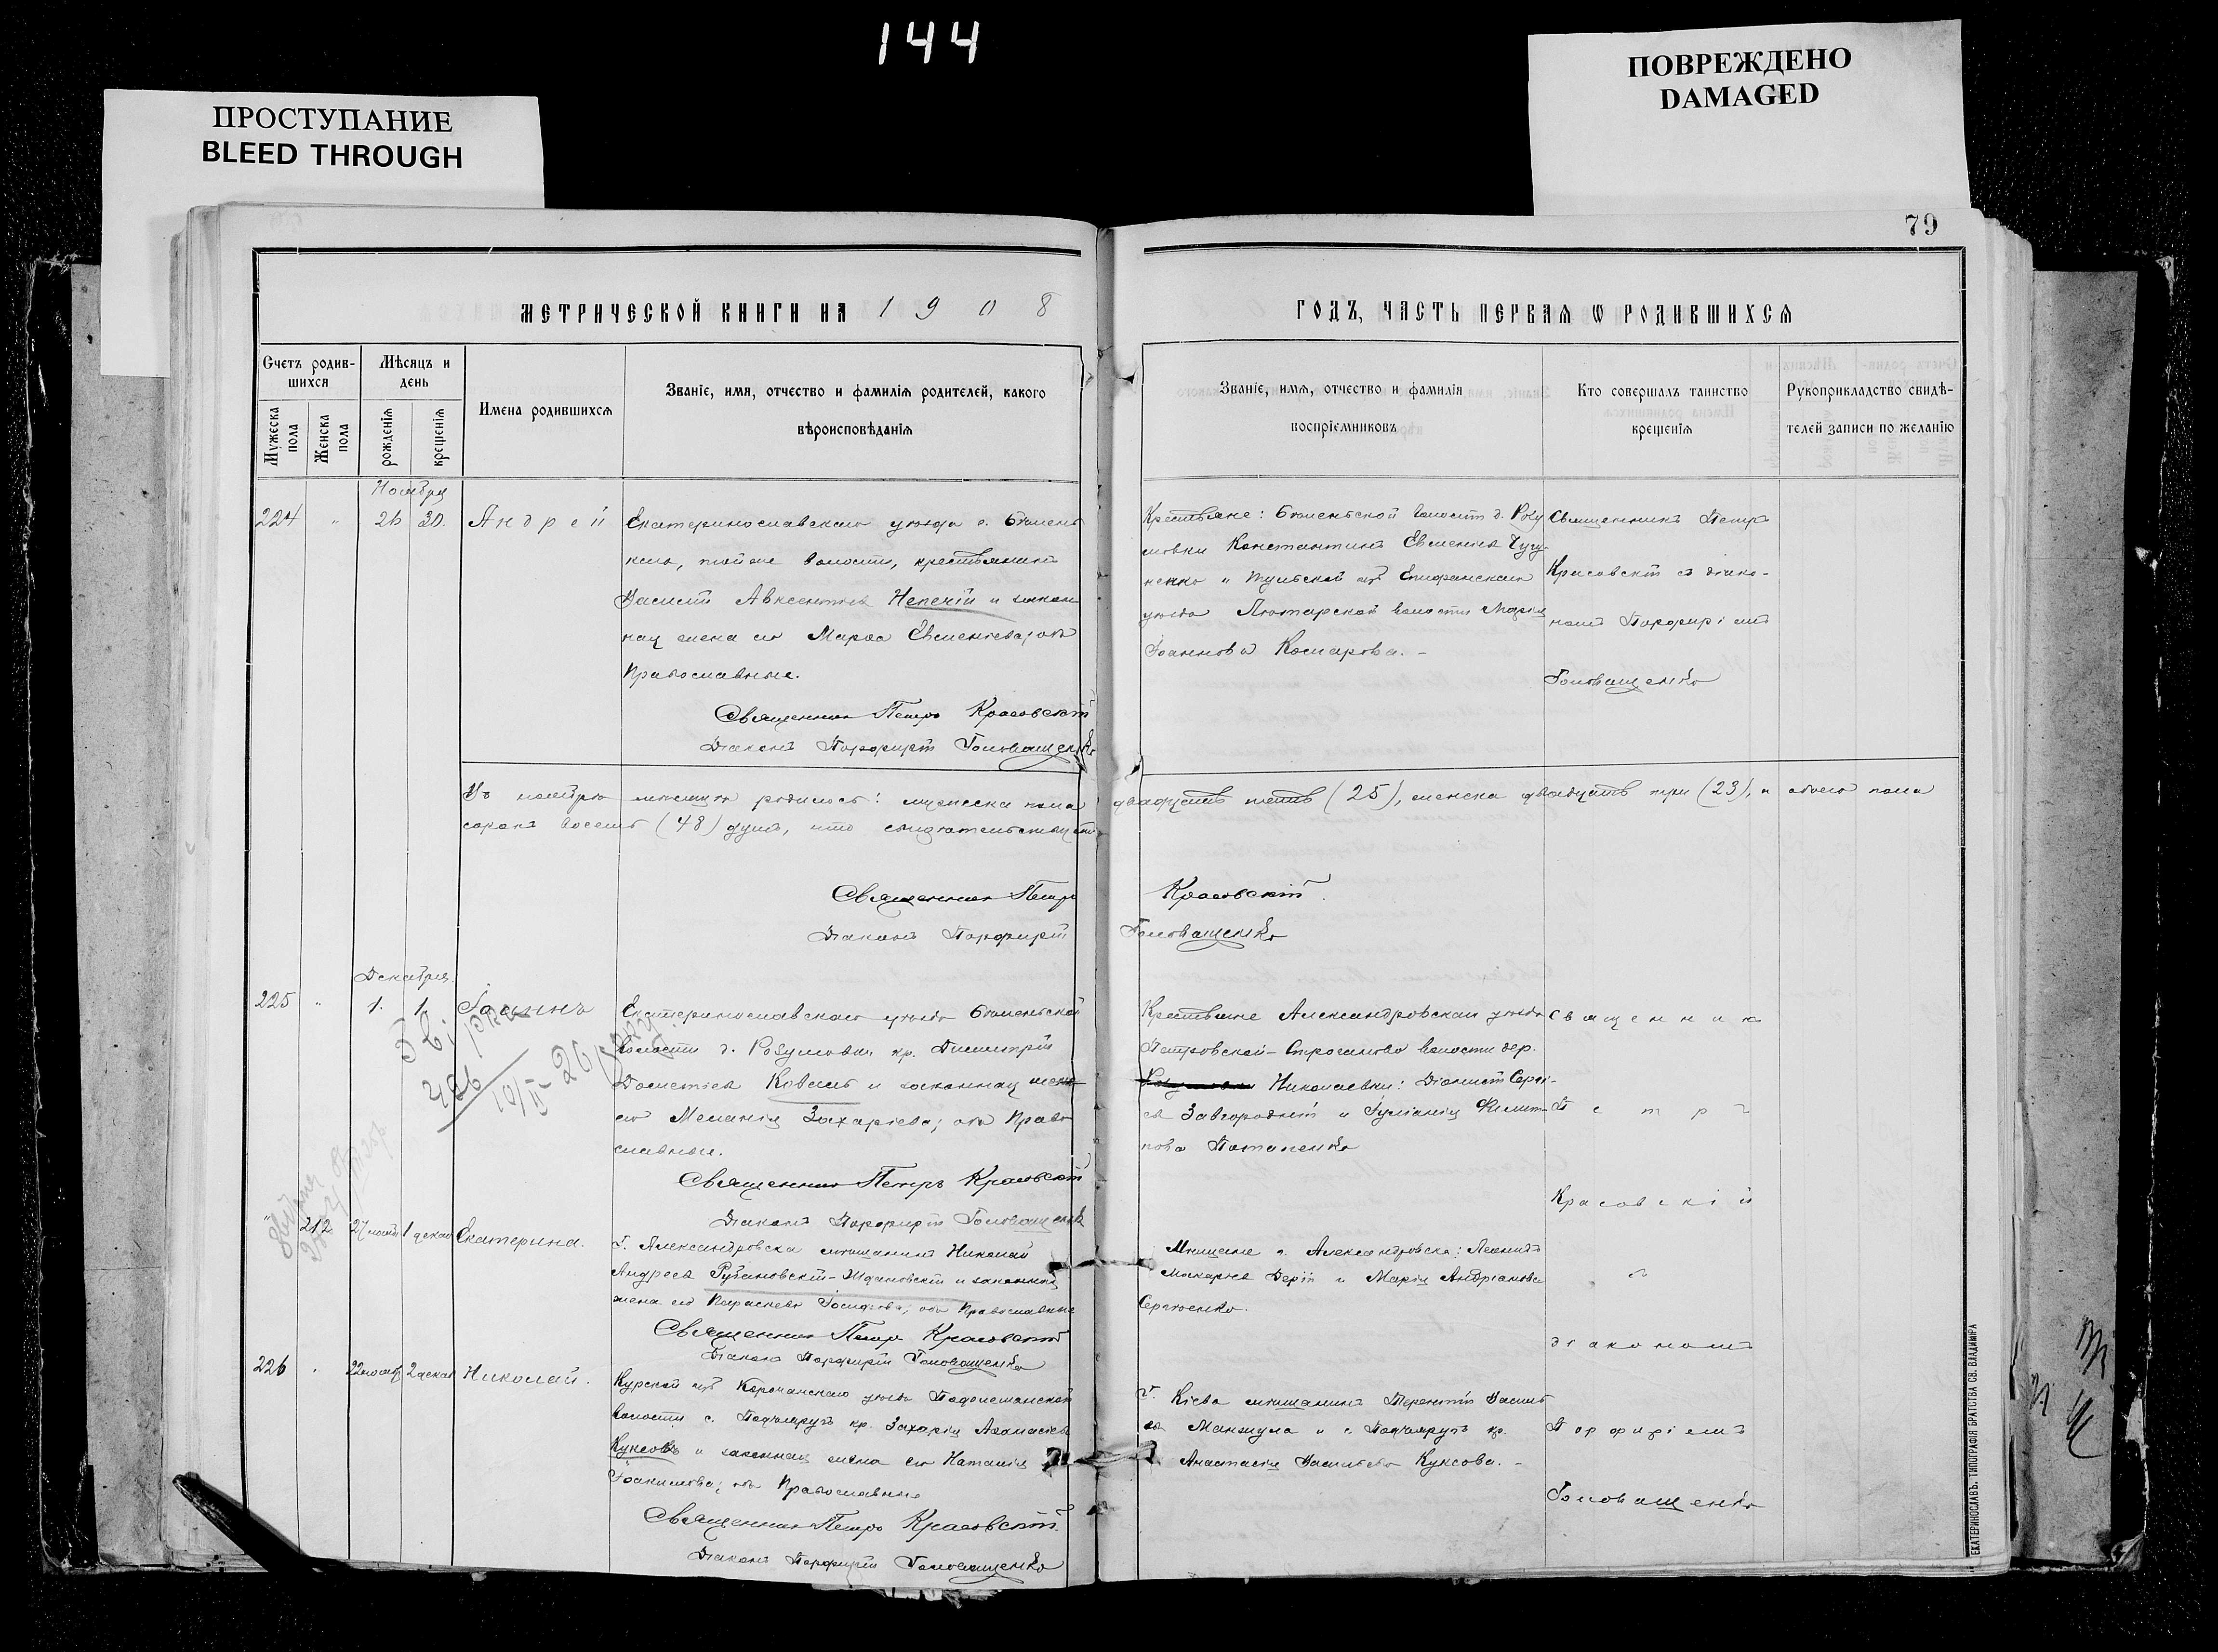 144
ПРОСТУПАНИЕ
BLEED THROUGH
ПОВРЕЖДЕНО
DAMAGED
79
МЕТРИЧЕСКОЙ КНИГИ НА 1908
ГОДЪ, ЧАСТЬ ПЕРВАЯ Ѡ РОДИВШИХСЯ
Счетъ родив-
шихся
Мужеска пола
Женска пола
Мѣсяцъ и
день
рожденія
крещенія
Имена родившихся
Званіе, имя, отчество и фамилія родителей, какого
вѣроисповѣданія
Званіе, имя, отчество и фамилія
воспріемниковъ
Кто совершалъ таинство
крещенія
Рукоприкладство свидѣ-
телей записи по желанію
Ноября
224 " 26 30. Андрей
Екатеринославскаго уѣзда с.
тойже волости, крестьянинъ
Василій Авксентіевъ Непечій и закон
ная жена его Марѳа Евменіева; оба
Православные.
Священникъ Петръ Красовскій
Діаконъ Порфирій Головащенко
Крестьяне: волости д. Розу
мовки Константинъ Евменіевъ Чугу-
ненко и Тульской губ. Епифанскаго
уѣзда волости Марія
Іоаннова Комарова. -
Священникъ Петръ
Красовскій съ діако-
номъ Порфиріемъ
Головащенко
Въ ноябрѣ мѣсяцѣ родилось: мужеска пола двадцать пять (25), женска двадцать три (23), а обоего пола
сорокъ восемь (48) душъ, что свидѣтельствуемъ
Священникъ Петръ Красовскій.
Діаконъ Порфирій Головащенко
Декабря.
225 " 1. 1. Іоаннъ
Екатеринославскаго уѣзда
волости д. Розумовки кр. Димитрій
Дометіевъ Коваль и законная жена
его Меланія Захаріева; оба Право
славные.
Священникъ Петръ Красовскій
Діаконъ Порфирій Головащенко
Крестьяне Александровскаго уѣзда
Петровской- волости дер.
Николаевки: Діонисій Сергі-
евъ Завгородній и Іуліанія Филип-
пова Потапенко
Священникъ
Петръ
Красовскій
" 212 27 нояб. 1 декаб Екатерина.
Г. Александровска мѣщанинъ Николай
Андреевъ и законная
жена его Параскева Іосифова; оба Православные
Священникъ Петръ Красовскій
Діаконъ Порфирій Головащенко
Мѣщане г. Александровска: Леонидъ
Макаріевъ Дерій и Марія Андріанова
Сергіенко.
съ
діакономъ
226 " 22 нояб 2 декаб Николай.
Курской губ. Корочанскаго уѣзда
волости с. кр. Захарія Аѳанасіевъ
Куксовъ и законная жена его Наталія
Іоакимова; оба Православные
Священникъ Петръ Красовскій.
Діаконъ Порфирій Головащенко
Г. Кіева мѣщанинъ Терентій Василь
евъ и с. кр.
Анастасія Васильева Куксова. -
Порфиріемъ
Головащенко
ЕКАТЕРИНОСЛАВЪ. ТИПОГРАФІЯ БРАТСТВА СВ. ВЛАДИМІРА